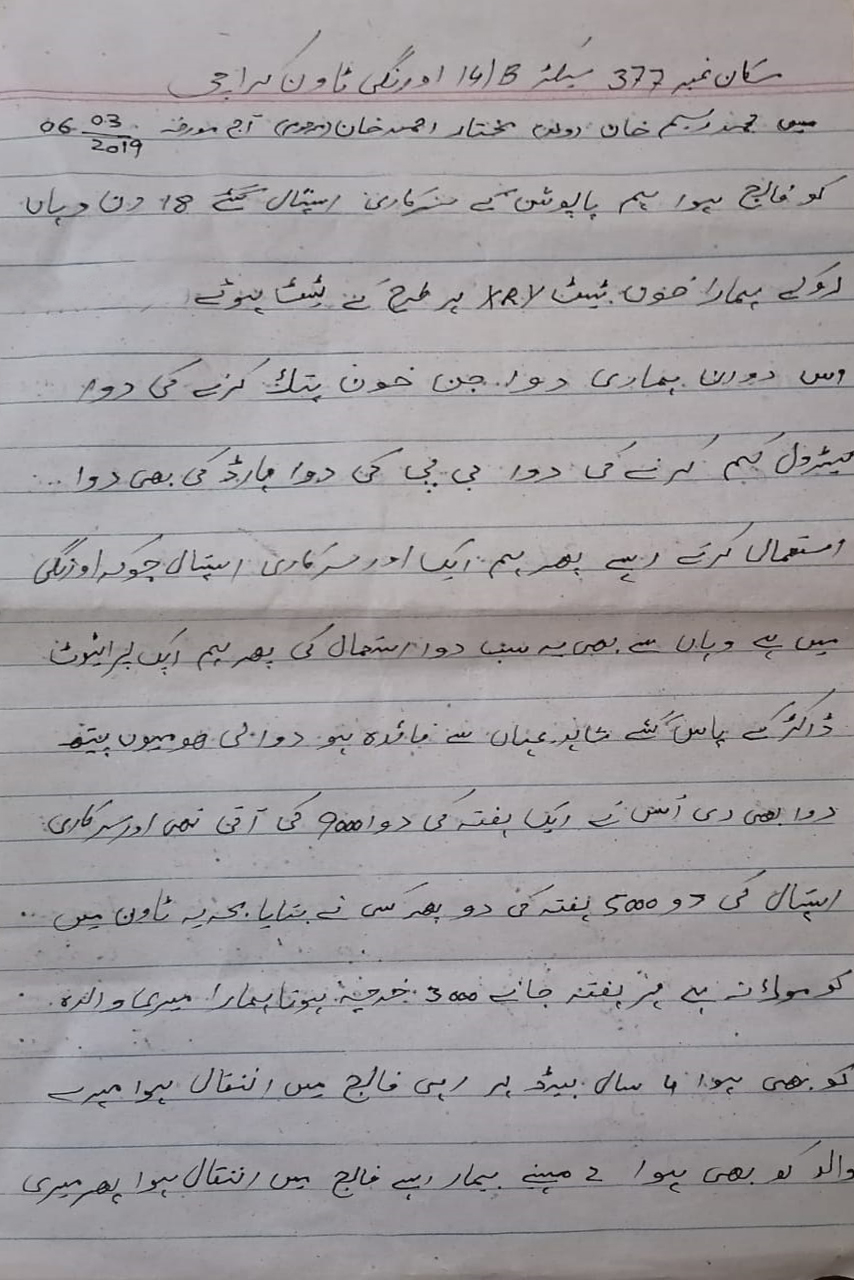 مکان نمبر 377 سیکٹر 14/B اورنگی ٹاون کراچی
میں محمد وسیم خان ولد مختار احمد خان (مرحوم) آج مورخہ 06 03 2019
کو فالج ہوا ہم پاپوش کے سرکاری اسپتال گئے 18 دن وہاں
روکے ہمارا خون ٹیسٹ XRY ہر طرح کے ٹیسٹ ہوئے
اس دورن ہماری دوا جن خون پتلا کرنے کی دوا
کرنے کی دوا بی پی کی دوا ہارڈ کی بھی دوا
استعمال کرتے رہے پھر ہم ایک اور سرکاری اسپتال جوکہ اورنگی
میں ہے وہاں سے بھی یہ سب دوا استعمال کی پھر ہم ایک پرائیوٹ
ڈاکٹر کے پاس گئے شاید یہاں سے فائدہ ہو دوا لی ھومیوں پیتھ
دوا بھی دی اس نے ایک ہفتہ کی دوا 9000 کی آتی تھی اور سرکاری
اسپتال کی دو 5000 ہفتہ کی دو پھر کسی نے بتایا بحریہ ٹاون میں
کو مولانہ ہے ہر ہفتہ جاتے 3000 خرچہ ہوتا ہمارا میری والدہ
کو بھی ہوا 4 سال بیڈ پر رہی فالج میں انتقال ہوا میرے
والد کو بھی ہوا 2 مہینے بیمار رہے فالج میں انتقال ہوا پھر میری